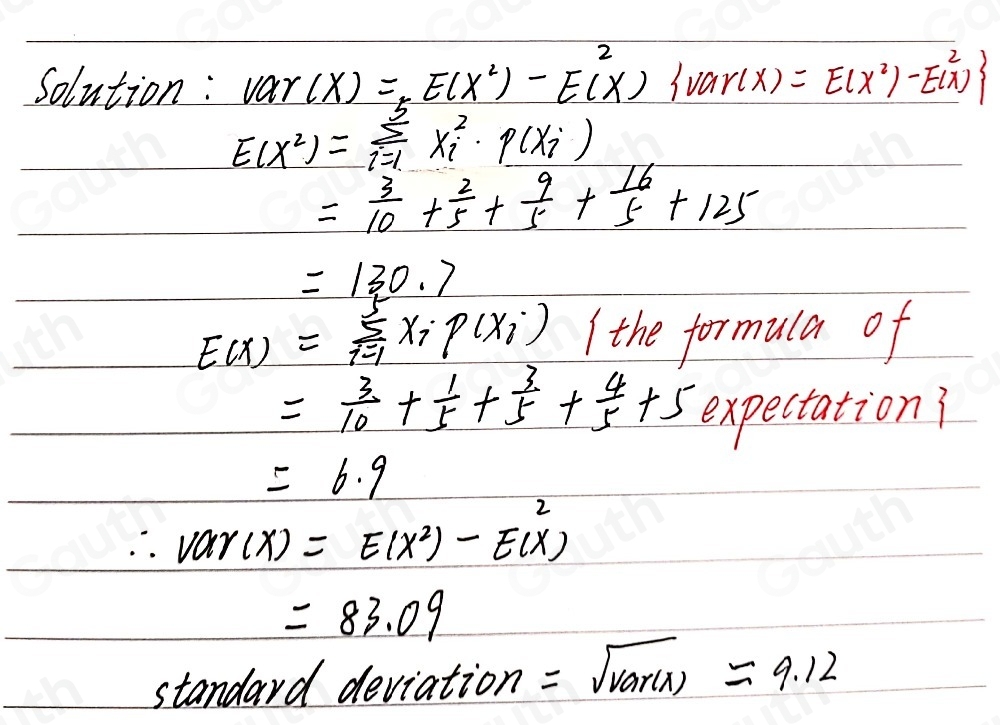 Solution : var(X) = E(X²) - E²(X) {var(X) = E(X²) - E²(X)}
E(X²) = ∑_{i=1}^{5} X_i² · P(X_i)
= 3/10 + 2/5 + 9/5 + 16/5 + 125
= 130.7
E(X) = ∑_{i=1}^{5} X_i P(X_i) {the formula of
= 3/10 + 1/5 + 3/5 + 4/5 + 5 expectation}
= 6.9
∴ var(X) = E(X²) - E²(X)
= 83.09
standard deviation = √var(X) ≈ 9.12